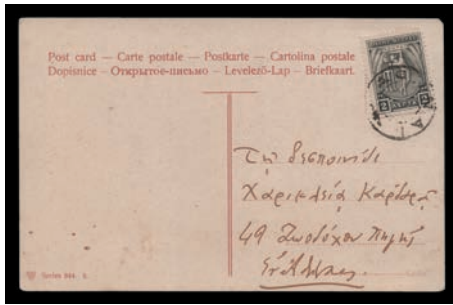 Post card — Carte postale — Postkarte — Cartolina postale
Dopisnice — Открытое-письмо — Levelező-Lap — Briefkaart.
Τῇ δεσποινίδι
Χαρικλείᾳ
49 Ζωοδόχου Πηγῆς
Series